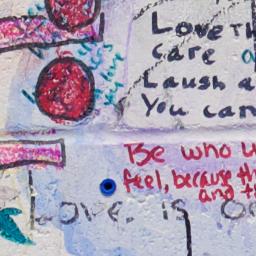 Love th
care a
Laugh a
You can
Be who u
feel, because th
and t
Love. is o